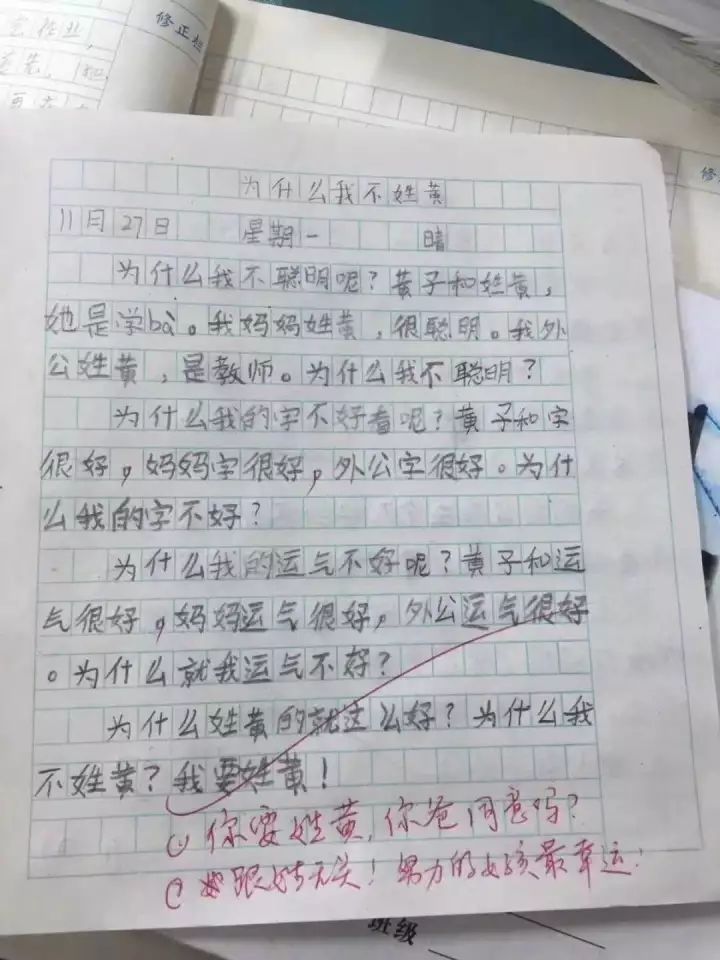 修正栏
修正
为什么我不姓黄
11月27日 星期一 晴
为什么我不聪明呢？黄子和姓黄，
她是学bà。我妈妈姓黄，很聪明。我外
公姓黄，是教师。为什么我不聪明？
为什么我的字不好看呢？黄子和字
很好，妈妈字很好，外公字很好。为什
么我的字不好？
为什么我的运气不好呢？黄子和运
气很好，妈妈运气很好，外公运气很好
。为什么就我运气不好？
为什么姓黄的就这么好？为什么我
不姓黄？我要姓黄！
你要姓黄，你爸同意吗？
跟姓无关！努力的女孩最幸运！
班级